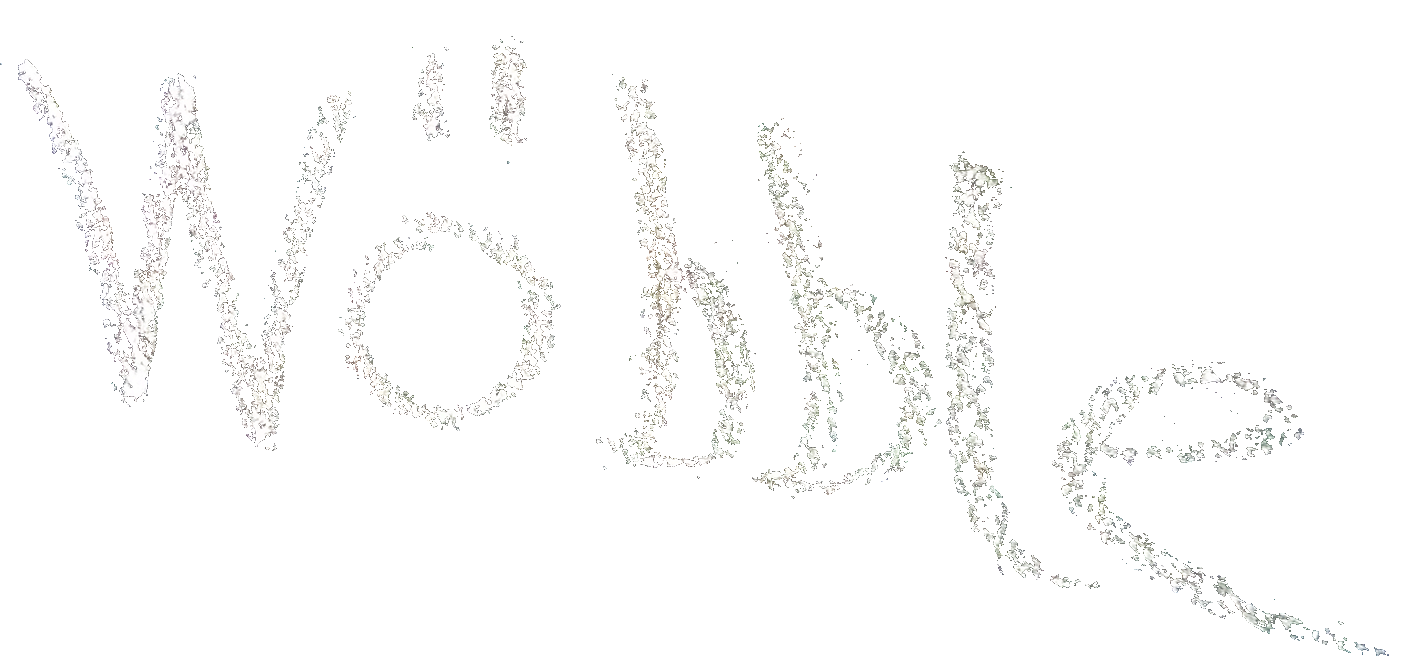 Wöbble